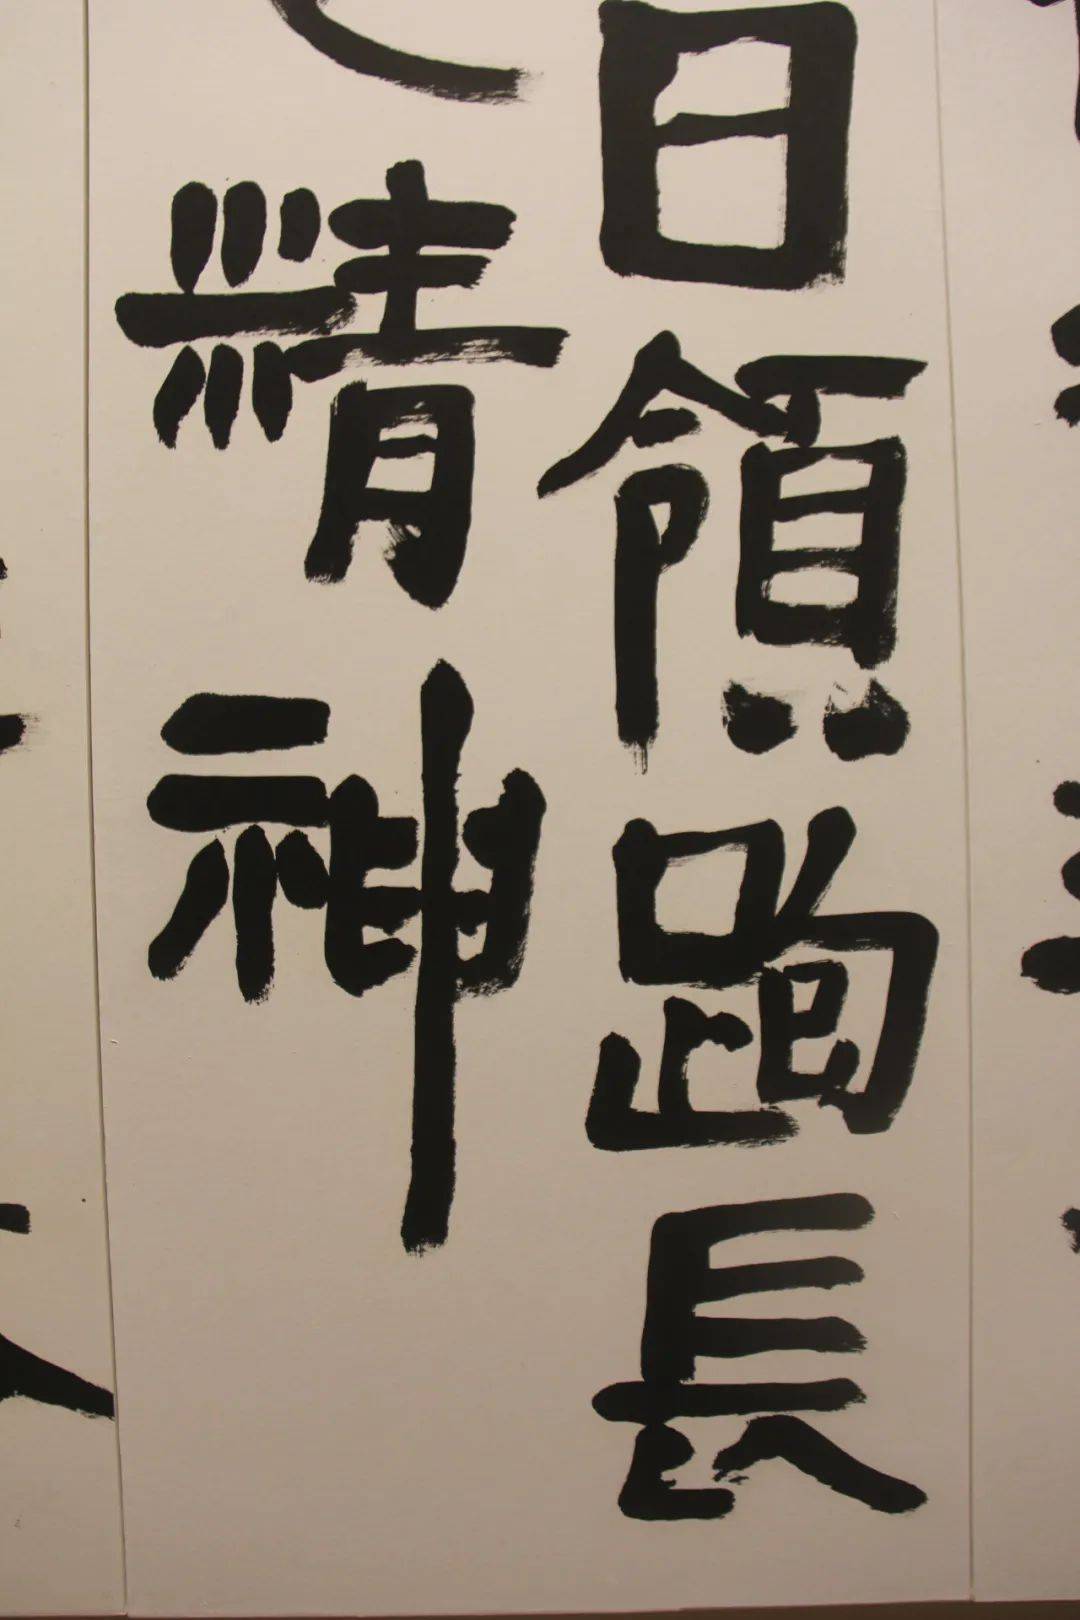 日領跑長
精神